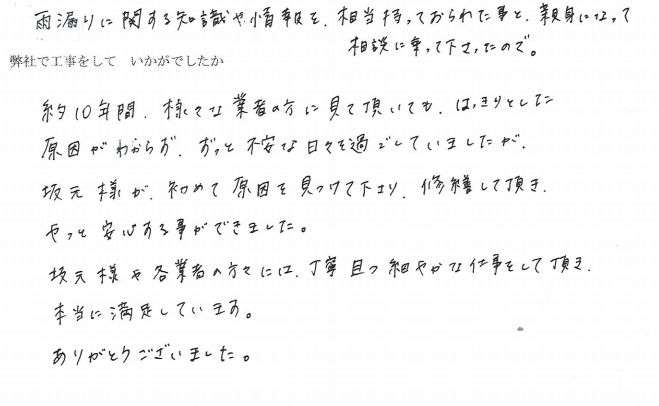 雨漏りに関する知識や情報を、相当持っておられた事と、親身になって
相談に乗って下さったので。
弊社で工事をして　いかがでしたか
約10年間、様々な業者の方に見て頂いても、はっきりとした
原因がわからず、ずっと不安な日々を過ごしていましたが、
坂元様が、初めて原因を見つけて下さり、修繕して頂き、
やっと安心する事ができました。
坂元様や各業者の方々には、丁寧且つ細やかな仕事をして頂き、
本当に満足しています。
ありがとうございました。